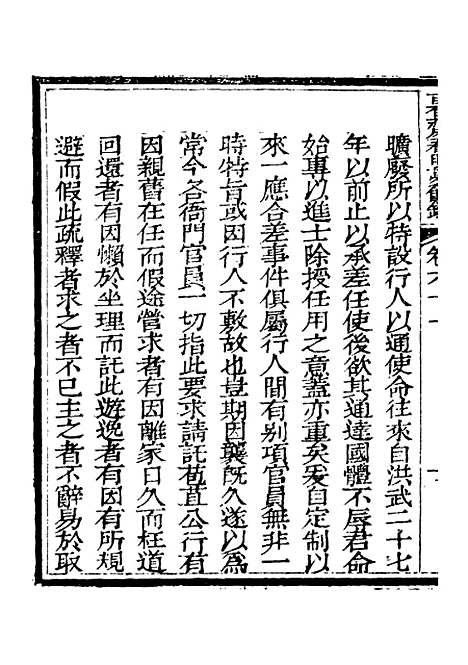 曠廢所以特設行人以通使命往來自洪武二十七
年以前止以承差任使後欲其通達國體不辱君命
始專以進士除授任用之意蓋亦重矣爰自定制以
來一應合差事件俱屬行人間有别項官員無非一
時特旨或因行人不敷故也豈期因襲旣久遂以為
常今各衙門官員一切指此要求請託苞苴公行有
因親舊在任而假途營求者有因離家日久而枉道
回還者有因懶於坐理而託此遊逸者有因有所規
避而假此疏釋者求之者不已主之者不辭易於取